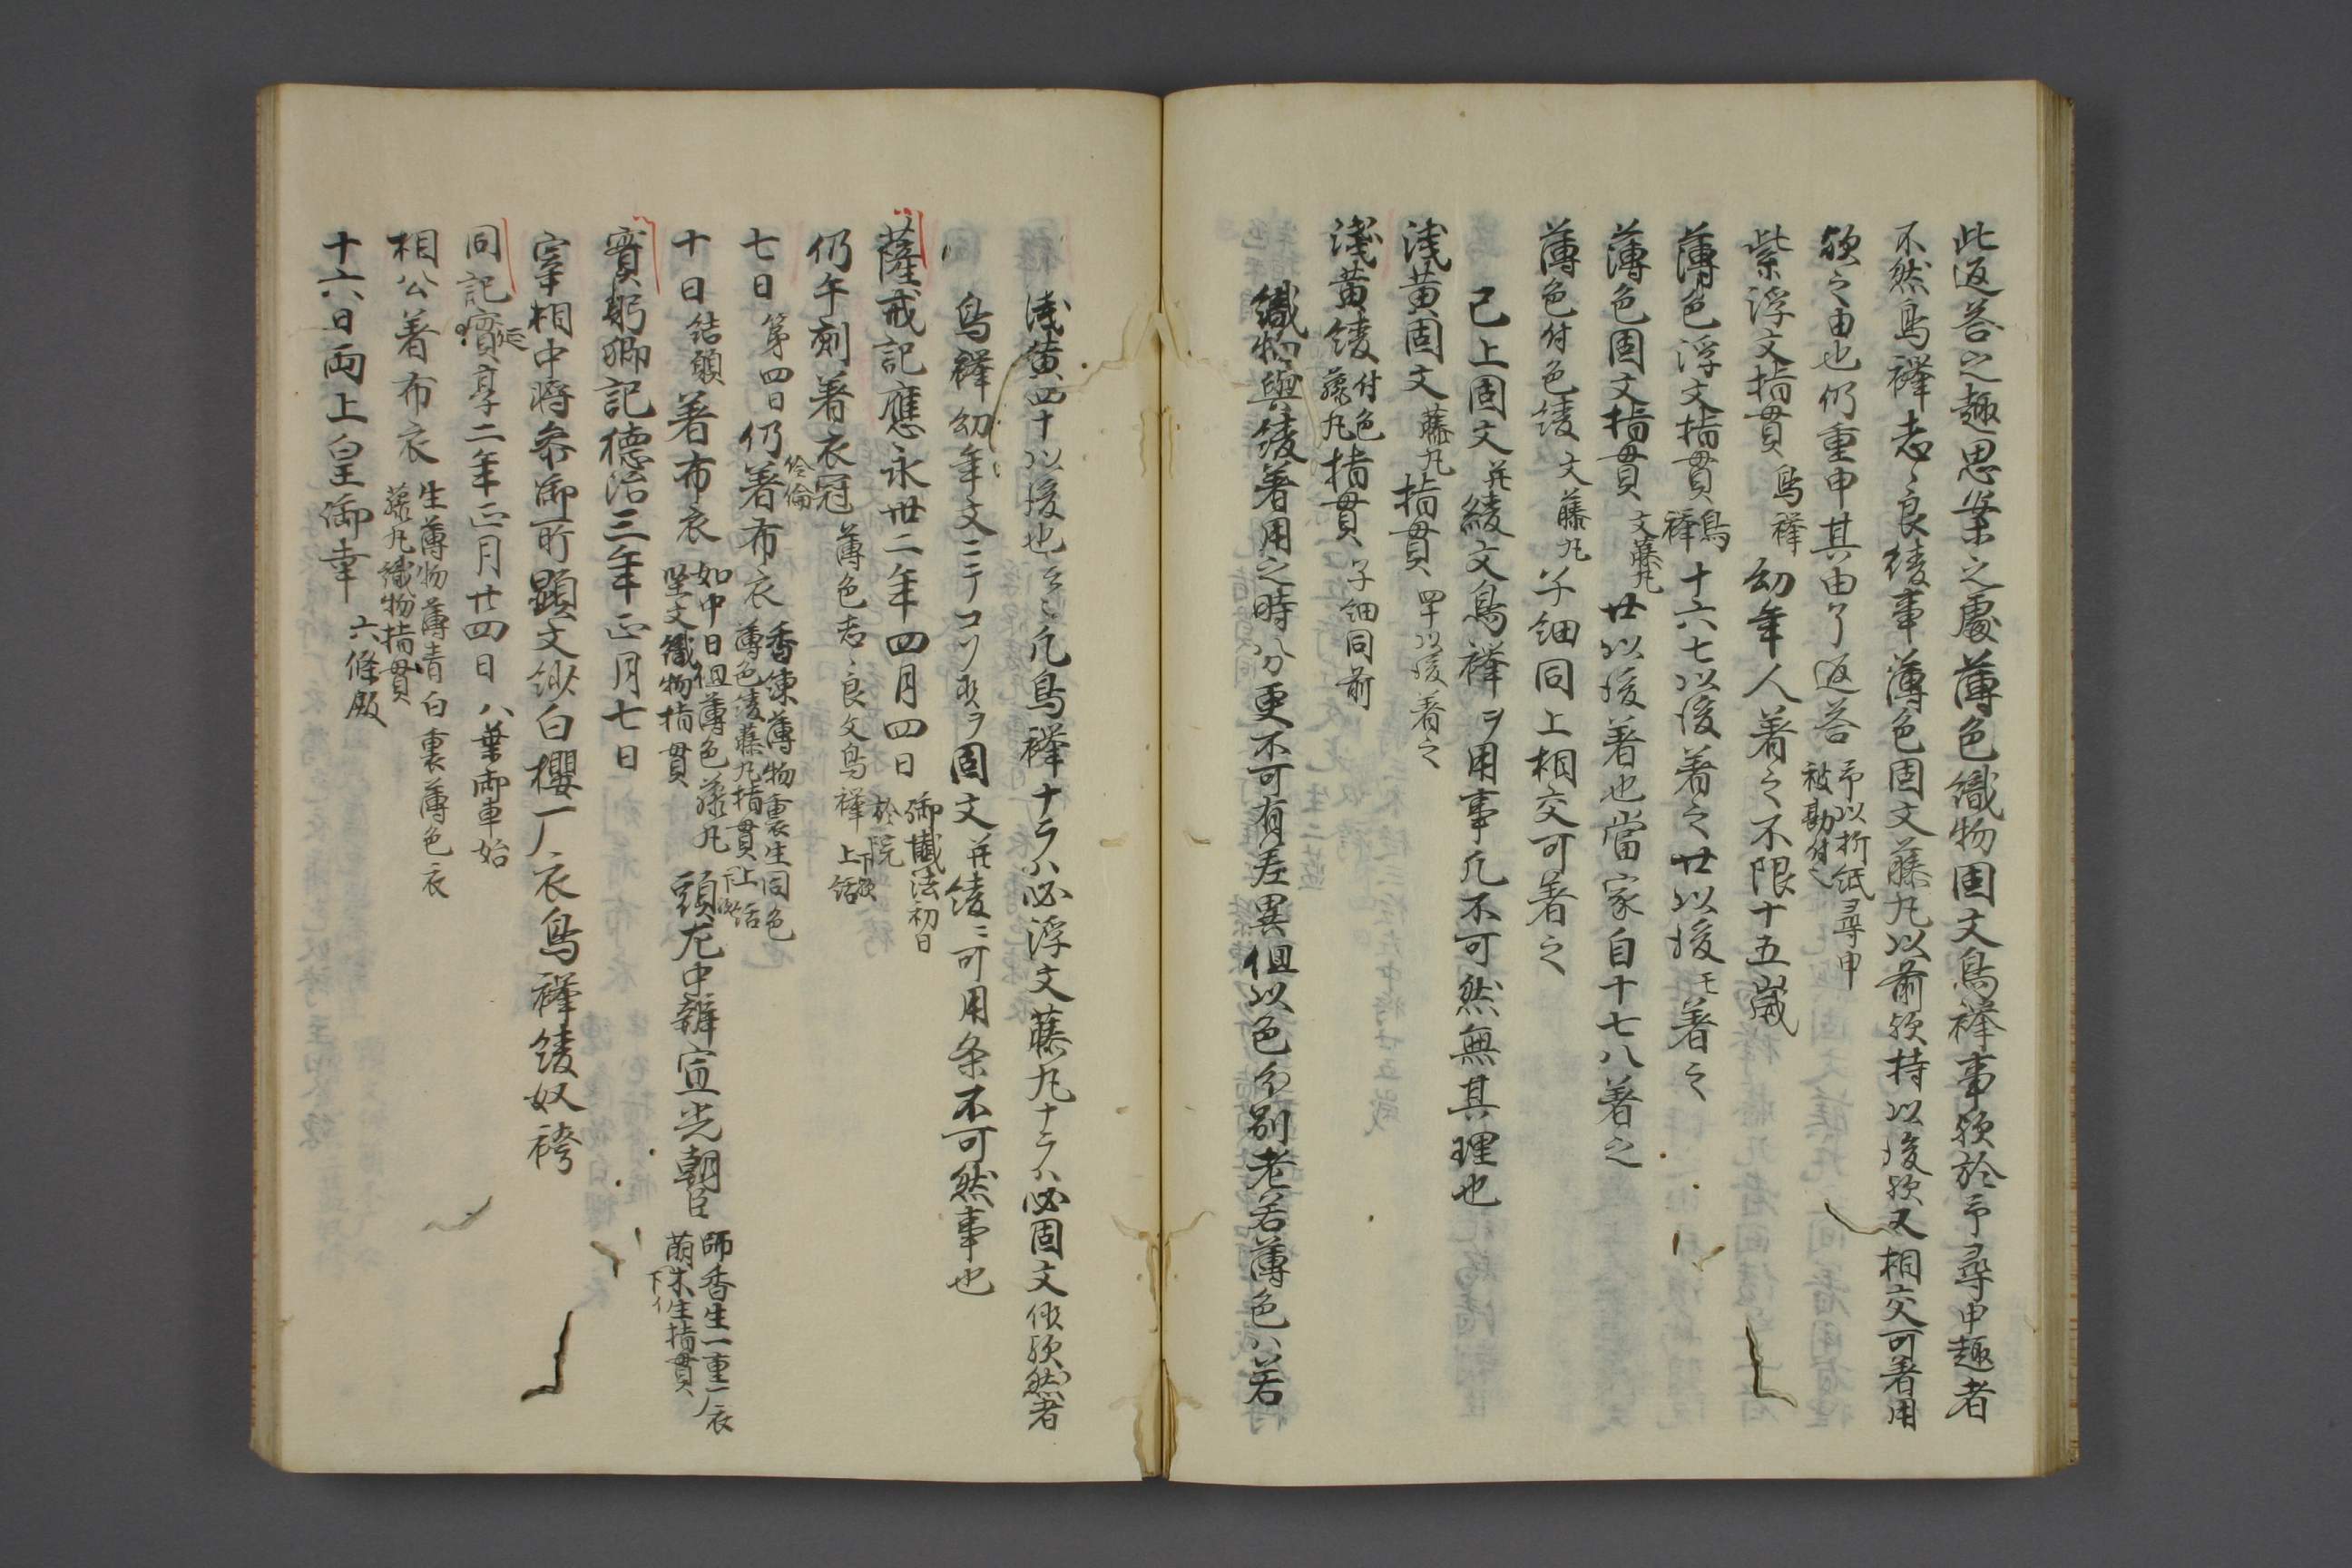 此返答之趣思案之處薄色織物固文鳥襷事欤於予尋申趣者
不然鳥襷志々良綾事薄色固文藤丸以前欤持以後欤又相交可著用
欤之由也仍重申其由了返答 予以折紙尋申
被勘付之
紫浮文指貫 鳥襷 幼年人著之不限十五歳
薄色浮文指貫 鳥襷 十六七以後著之廿以後モ著之
薄色固文指貫 文藤丸 廿以後著也當家自十七八著之
薄色付色綾 文藤丸 子細同上相交可著之
已上固文并綾文鳥襷ヲ用事凡不可然無其理也
浅黄固文 藤丸 指貫 四十以後著之
淺黄綾 付色 藤丸 指貫 子細同前
織物與綾著用之時分更不可有差異但以色分別老若薄色ハ若
浅黄四十以後也云々凡鳥襷十ラハ必浮文藤丸十ラハ必固文候欤然者
鳥襷幼年文ニテコソ候ヲ固文并綾ニ可用条不可然事也
薩戒記應永卅二年四月四日 御懺法初日
於院
仍午刻著衣冠 薄色志々良文鳥襷 下欤
上括
七日 第四日 仍著布衣 香練薄物裏生同色
薄色綾藤丸指貫 上括
十日 結願 著布衣 如中日但薄色藤丸
堅文織物指貫 頭左中辨宣光朝臣 師香生一重一衣
萌木生指貫
實躬卿記徳治三年正月七日
宰相中將参御所顕文紗白櫻一衣鳥襷綾奴袴
同記延寶享二年正月廿四日 八葉御車始
相公著布衣 生薄物薄青白裏薄色衣
藤丸織物指貫
十六日両上皇御幸 六條殿